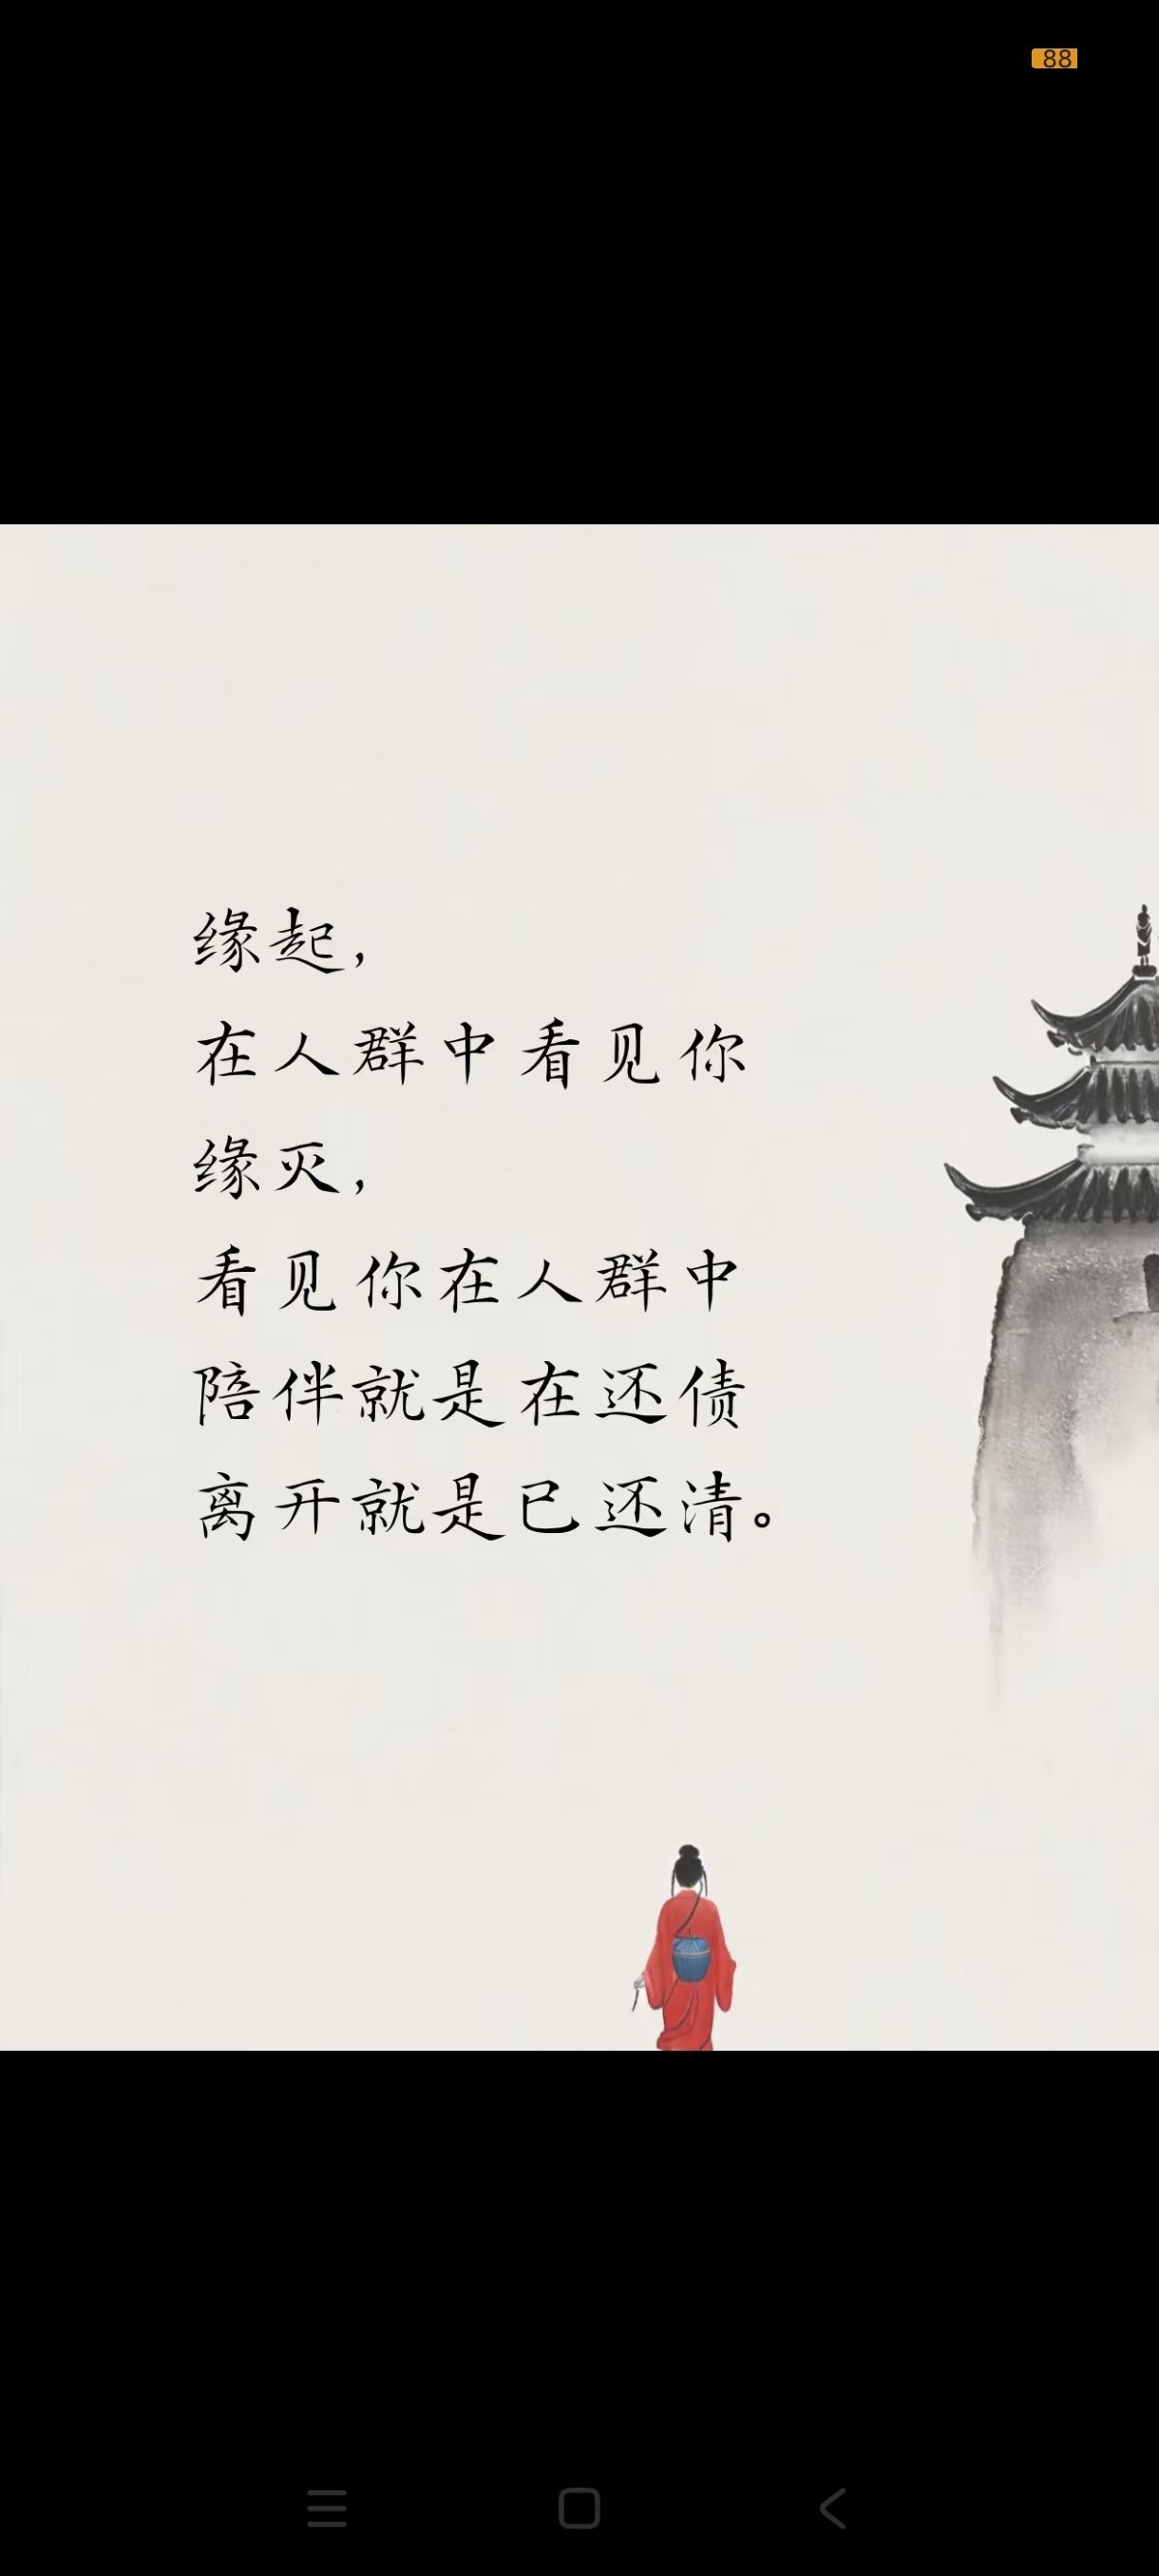 88
缘起，
在人群中看见你
缘灭，
看见你在人群中
陪伴就是在还债
离开就是已还清。